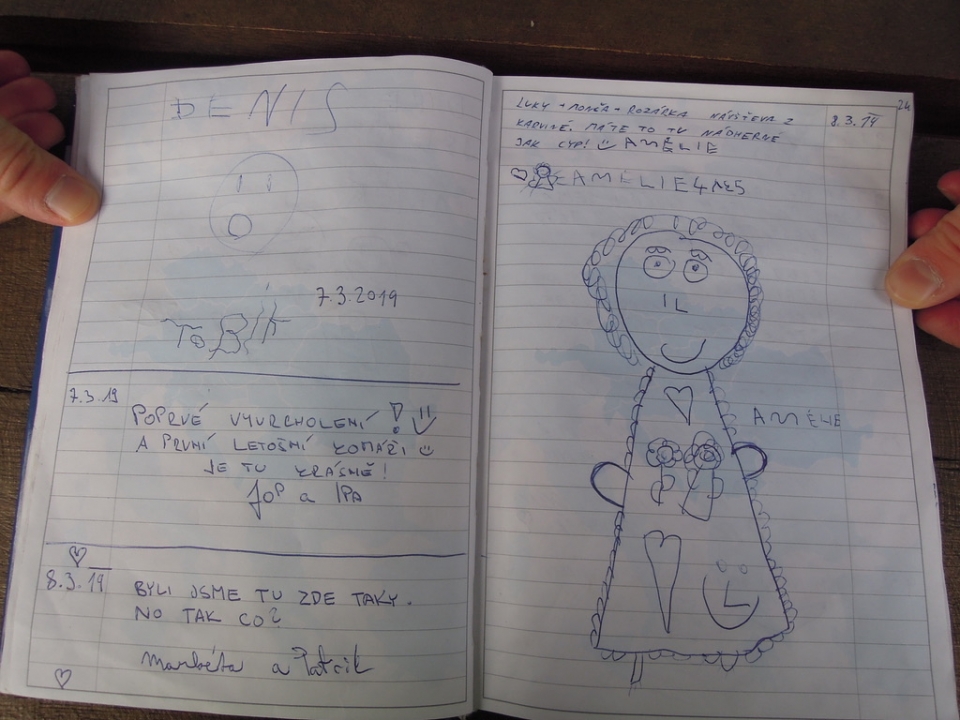 DENIS
7.3.2019
ToBÍK
7.3.19
POPRVÉ VYVRCHOLENÍ !
A PRVNÍ LETOŠNÍ KOMÁŘI
JE TU KRÁSNĚ!
JOP a IPA
8.3.19
BYLI JSME TU ZDE TAKY.
NO TAK CO?
Markéta a Patrik
24
8.3.19
LUKY + MONČA + ROZÁRKA NÁVŠTĚVA Z
KARVINÉ. MÁTE TO TU NÁDHERNÉ
JAK CYP! AMÉLIE
AMELIE 4
AMÉLIE